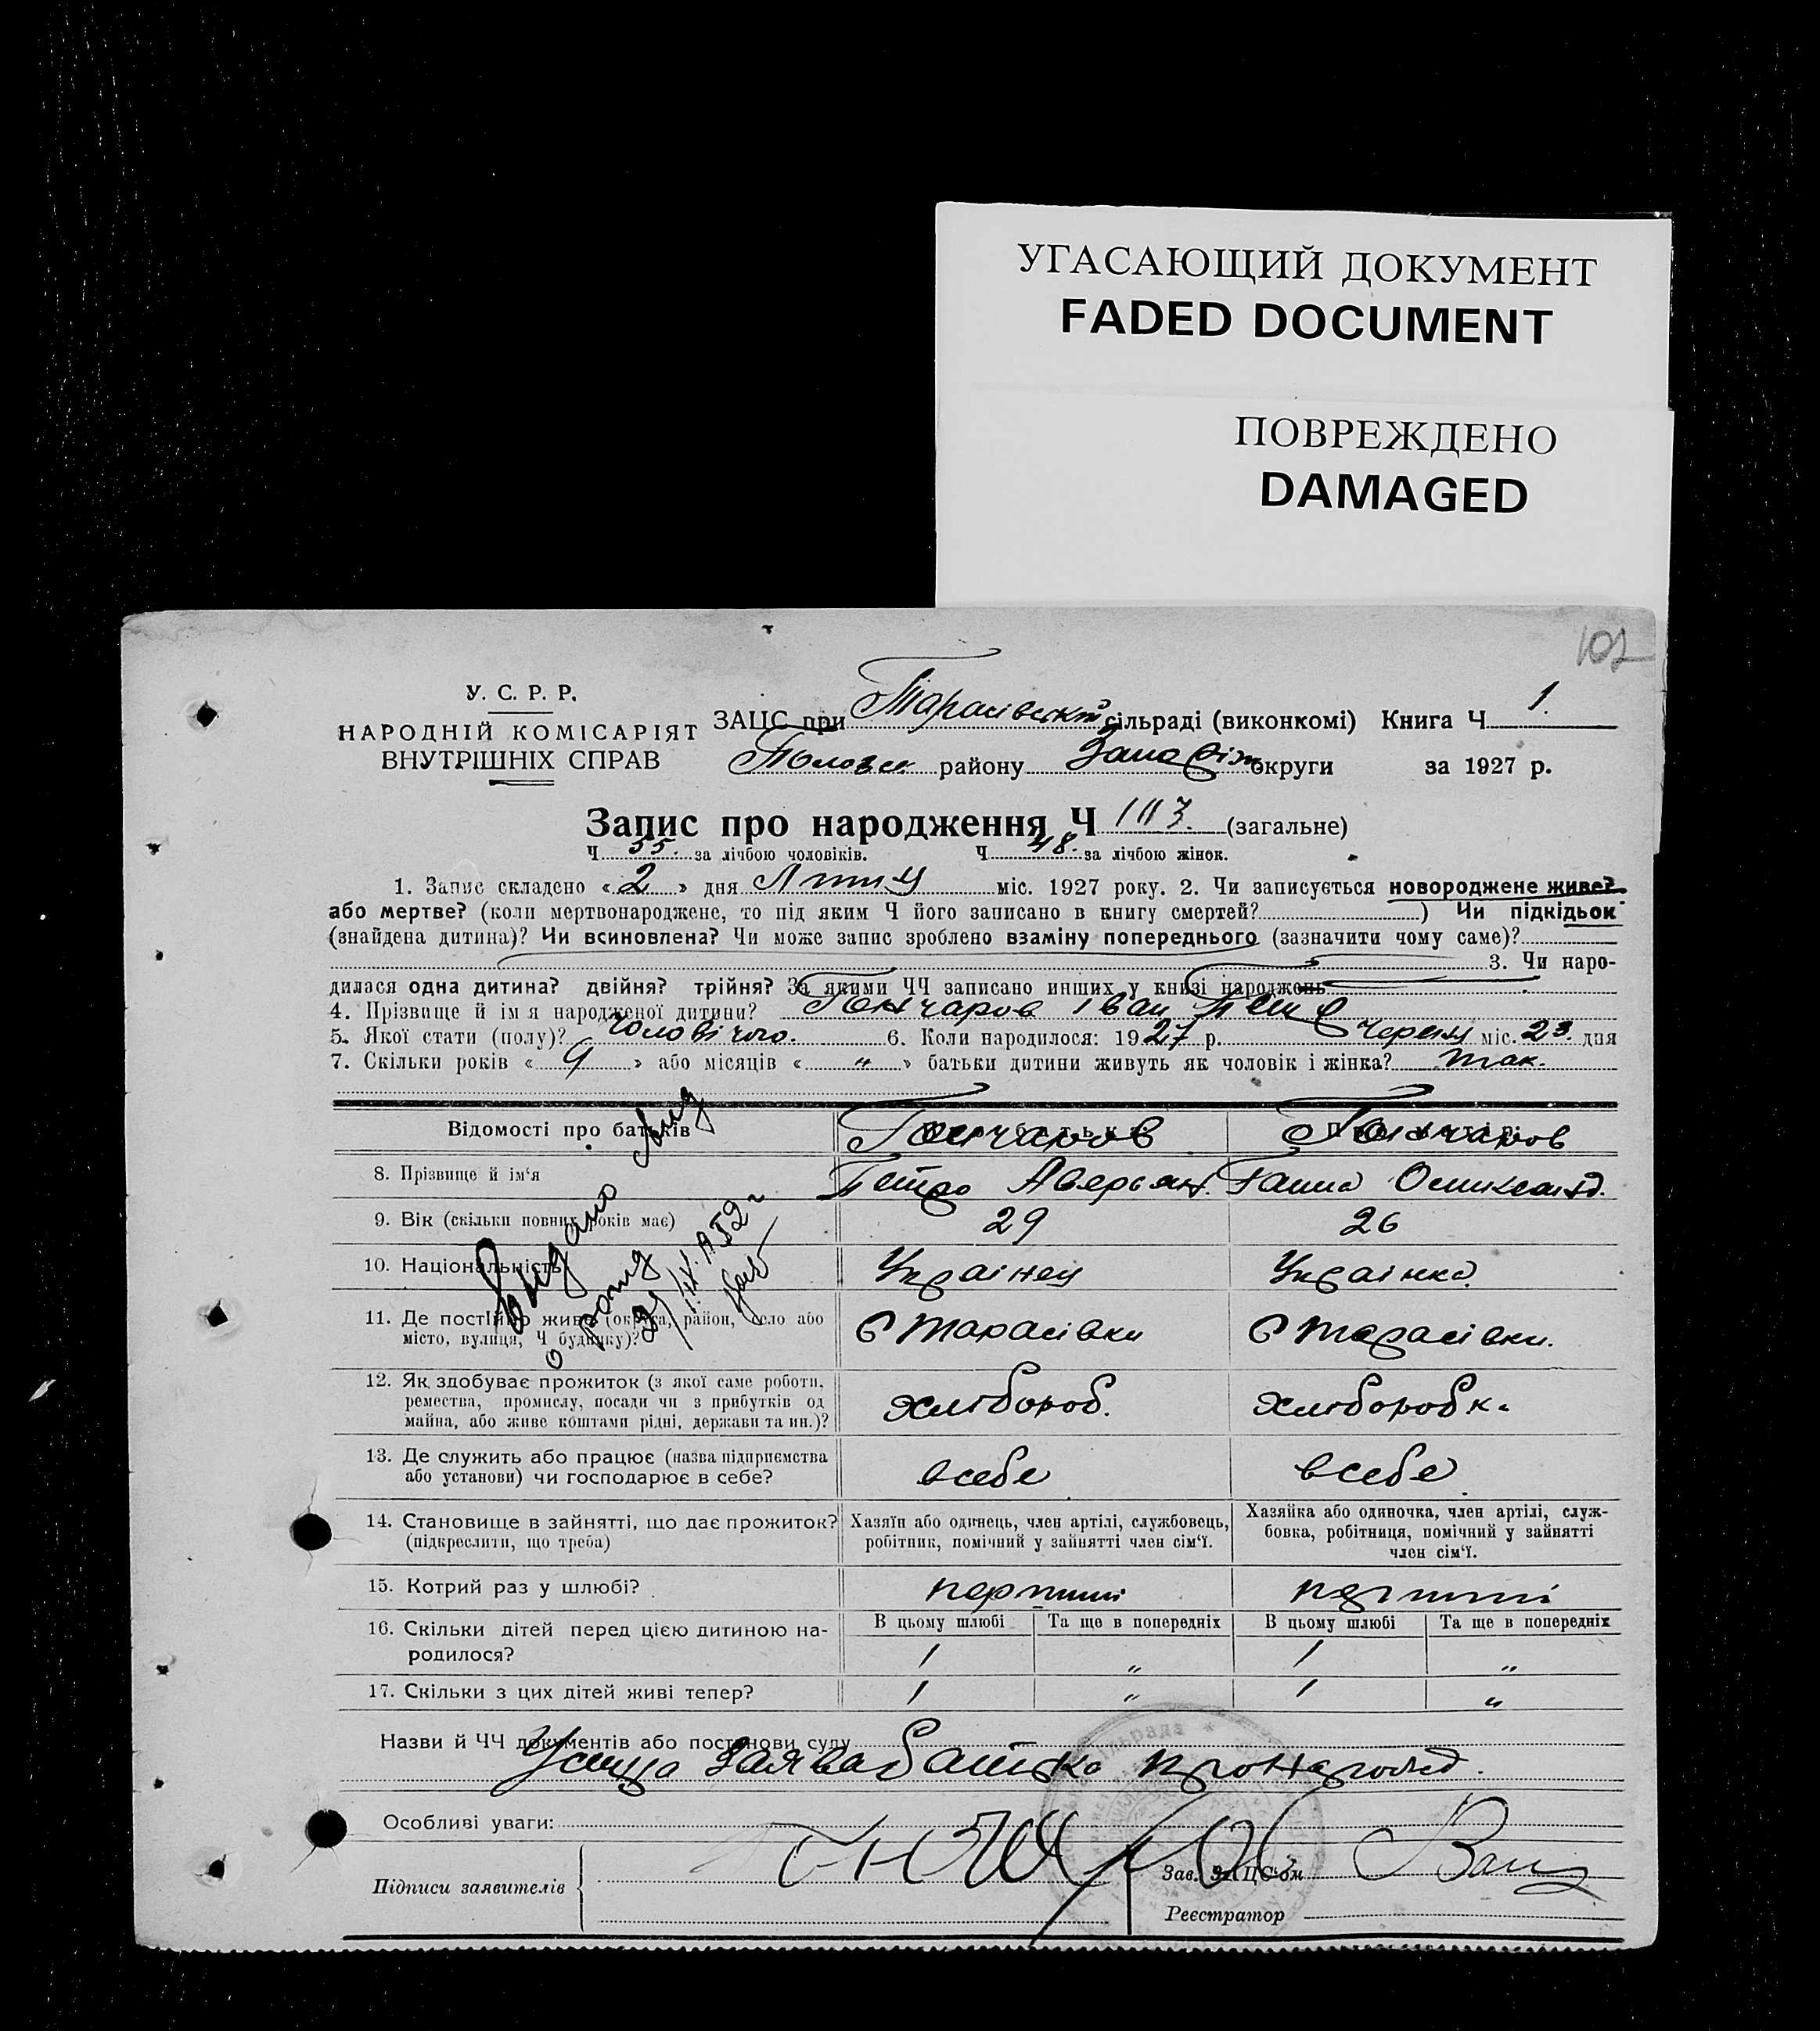 УГАСАЮЩИЙ ДОКУМЕНТ
FADED DOCUMENT
ПОВРЕЖДЕНО
DAMAGED
102
У. С. Р. Р.
НАРОДНІЙ КОМІСАРІЯТ
ВНУТРІШНІХ СПРАВ
ЗАЦС при Тарасівськ сільраді (виконкомі) Книга Ч 1.
района Запоріж округи за 1927 р.
Запис про народження Ч 103. (загальне)
Ч 55. за лічбою чоловіків. Ч 48. за лічбою жінок.
1. Запис складено «2» дня Липц міс. 1927 року. 2. Чи записується новороджене живе?
або мертве? (коли мертвонароджене, то під яким Ч його записано в книгу смертей? ) Чи підкідьок
(знайдена дитина)? Чи всиновлена? Чи може запис зроблено взаміну попереднього (зазначити чому саме)?
3. Чи наро-
дилася одна дитина? двійня? трійня? За якими ЧЧ записано инших у книзі народжень
4. Прізвище й ім я народженої дитини? Гончаров Іван Петр
5. Якої стати (полу)? чоловічого. 6. Коли народилося: 1927 р. червц міс. 23. дня
7. Скільки років «9» або місяців «"» батьки дитини живуть як чоловік і жінка? так.
Відомості про батьків Гончаров Гончаров
8. Прізвище й ім‘я Петро Аверьян. Ганна
9. Вік (скільки повних років має) 29 26
10. Національність Українец Українка
11. Де постійно живе (округа, район, село або
місто, вулиця, Ч будинку)? С Тарасівки С Тарасівки.
Видано
12. Як здобуває прожиток (з якої саме роботи,
ремества, промислу, посади чи з прибутків од
майна, або живе коштами рідні, держави та ин.)? хлібороб. хлібороб к.
13. Де служить або працює (назва підприємства
або установи) чи господарює в себе? в себе в себе
14. Становище в зайнятті, що дає прожиток?
(підкреслити, що треба)
Хазяїн або одинець, член артілі, службовець,
робітник, помічний у зайнятті член сім‘ї.
Хазяйка або одиночка, член артілі, служ-
бовка, робітниця, помічний у зайнятті
член сім‘ї.
15. Котрий раз у шлюбі? перший перший
16. Скільки дітей перед цією дитиною на-
родилося?
В цьому шлюбі Та ще в попередніх В цьому шлюбі Та ще в попередніх
1 " 1 "
17. Скільки з цих дітей живі тепер? 1 " 1 "
Назви й ЧЧ документів або постанови суду
Усна Заява батька про народ.
Особливі уваги:
Підписи заявителів
Зав. ЗАЦС‘ом
Реєстратор